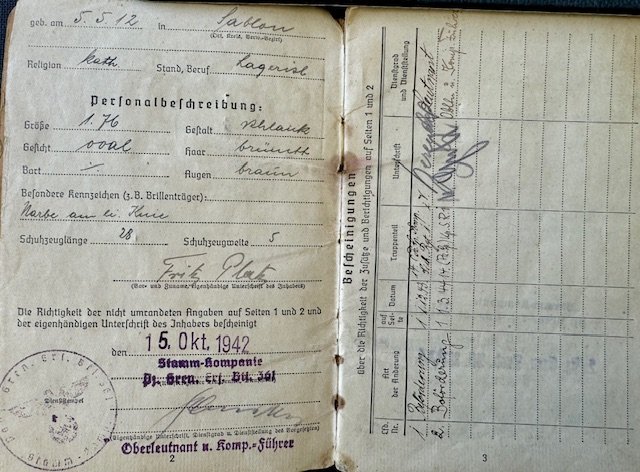 geb. am 5.5.12 in Sablon
(Ort, Kreis, Verw.-Bezirk)
Religion kath Stand, Beruf Lagerist
Personalbeschreibung:
Größe 1.76 Gestalt schlank
Gesicht oval Haar brünett
Bart – Augen braun
Besondere Kennzeichen (z.B. Brillenträger):
Narbe am li. Knie
Schuhzeuglänge 28 Schuhzeugweite 5
Fritz
(Vor- und Zuname, eigenhändige Unterschrift des Inhabers)
Die Richtigkeit der nicht umrandeten Angaben auf Seiten 1 und 2 und
der eigenhändigen Unterschrift des Inhabers bescheinigt
den 15. Okt. 1942
Stamm-Kompanie
Pz. Gren. Ers. Btl. 361
Dienststempel
(Eigenhändige Unterschrift, Dienstgrad u. Dienststellung des Vorgesetzten)
Oberleutnant u. Komp.-Führer
2
Bescheinigungen
über die Richtigkeit der Zusätze und Berichtigungen auf Seiten 1 und 2
Lfd. Nr.
Art der Änderung
auf Seite
Datum
Truppenteil
Unterschrift
Dienstgrad und Dienststellung
1.
2. Beförderung 1 1.3.44
3